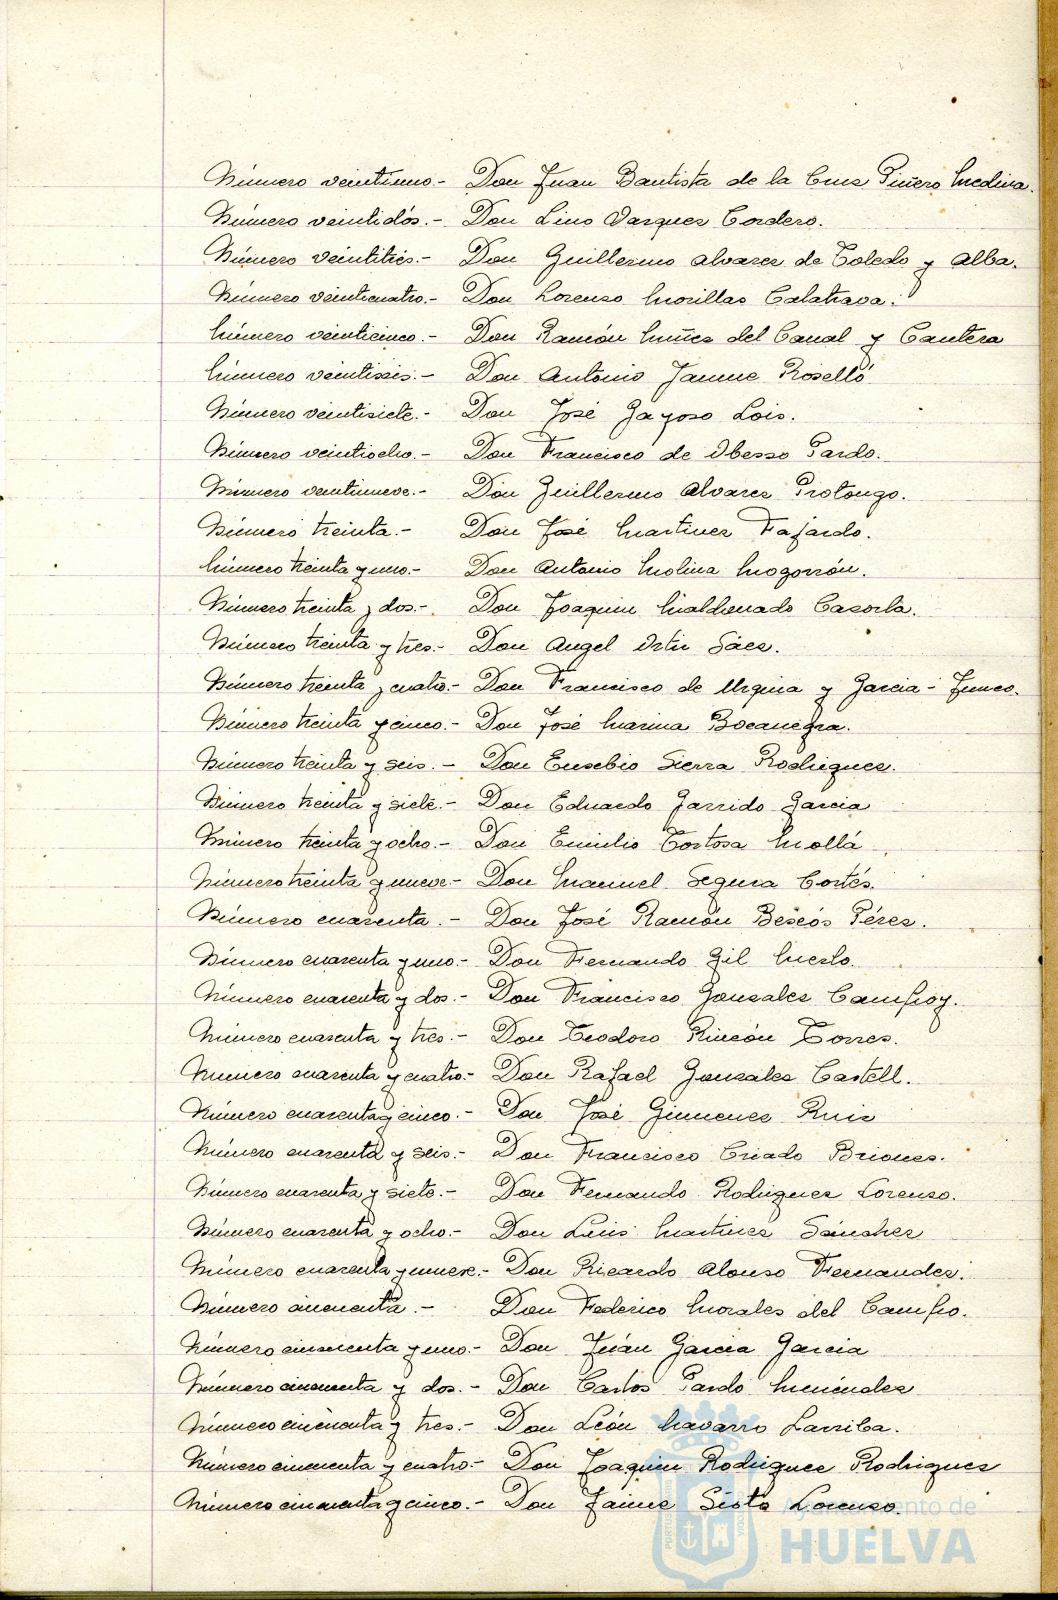 Número veintiuno.- Don Juan Bautista de la Cruz Piñero Medina.
Número veintidós.- Don Lino Vazquez Cordero.
Número veintitrés.- Don Guillermo Alvarez de Toledo y Alba.
Número veinticuatro.- Don Lorenzo Morillas Calatrava.
Número veinticinco.- Don Ramón Nuñez del Canal y Cantera
Número veintiseis.- Don Antonio Jaume Roselló
Número veintisiete.- Don José Gayoso Lois.
Número veintiocho.- Don Francisco de Obesso Pardo.
Número veintinueve.- Don Guillermo Alvarez Protongo.
Número treinta.- Don José Martinez Fajardo.
Número treinta y uno.- Don Antonio Molina Mogorrón.
Número treinta y dos.- Don Joaquin Maldonado Cazorla.
Número treinta y tres.- Don Angel Ortiz Sáez.
Número treinta y cuatro.- Don Francisco de Urquia y Garcia-Junco.
Número treinta y cinco.- Don José Marina Bocanegra.
Número treinta y seis.- Don Eusebio Sierra Rodriguez.
Número treinta y siete.- Don Eduardo Garrido Garcia
Número treinta y ocho.- Don Emilio Tortosa Mollá
Número treinta y nueve.- Don Manuel Segura Cortés.
Número cuarenta.- Don José Ramón Bescós Pérez.
Número cuarenta y uno.- Don Fernando Gil Merlo.
Número cuarenta y dos.- Don Francisco Gonzalez Camfroy.
Número cuarenta y tres.- Don Teodoro Rincón Torres.
Número cuarenta y cuatro.- Don Rafael Gonzalez Castell.
Número cuarenta y cinco.- Don José Gimenez Ruiz
Número cuarenta y seis.- Don Francisco Criado Briones.
Número cuarenta y siete.- Don Fernando Rodriguez Lorenzo.
Número cuarenta y ocho.- Don Luis Martinez Sánchez
Número cuarenta y nueve.- Don Ricardo Alonso Fernandez.
Número cincuenta.- Don Federico Morales del Campo.
Número cincuenta y uno.- Don Juán Garcia Garcia
Número cincuenta y dos.- Don Carlos Pardo Menéndez
Número cincuenta y tres.- Don León Navarro Larriba.
Número cincuenta y cuatro.- Don Joaquin Rodriguez Rodriguez
Número cincuenta y cinco.- Don Jaime Sisto Lorenzo.
Ayuntamiento de
HUELVA